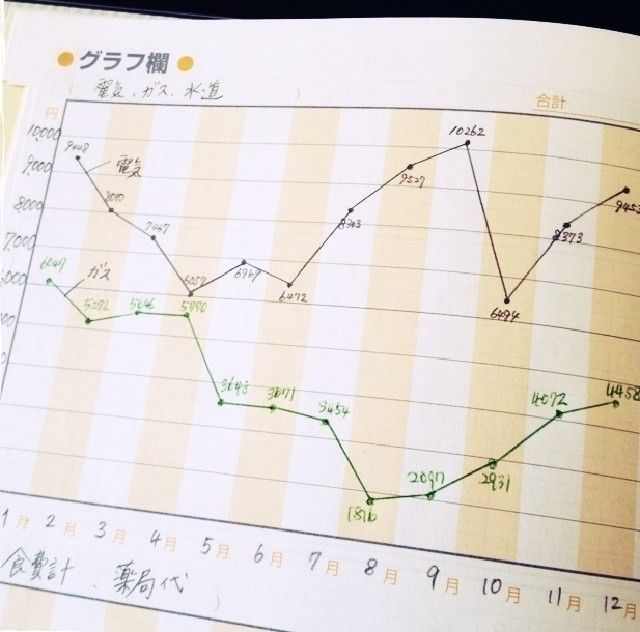 ● グラフ欄 ●
( 電気、ガス、水道 )
合計
円
10,000
9,000
8,000
7,000
10262
9448
電気
9527
9453
8010
8343
8373
7467
6969
6057
6472
6494
6047
ガス
5046
5000
3648
3671
3454
4072
4458
2097
2931
1816
1月 2月 3月 4月 5月 6月 7月 8月 9月 10月 11月 12月
食費計、薬局代
)